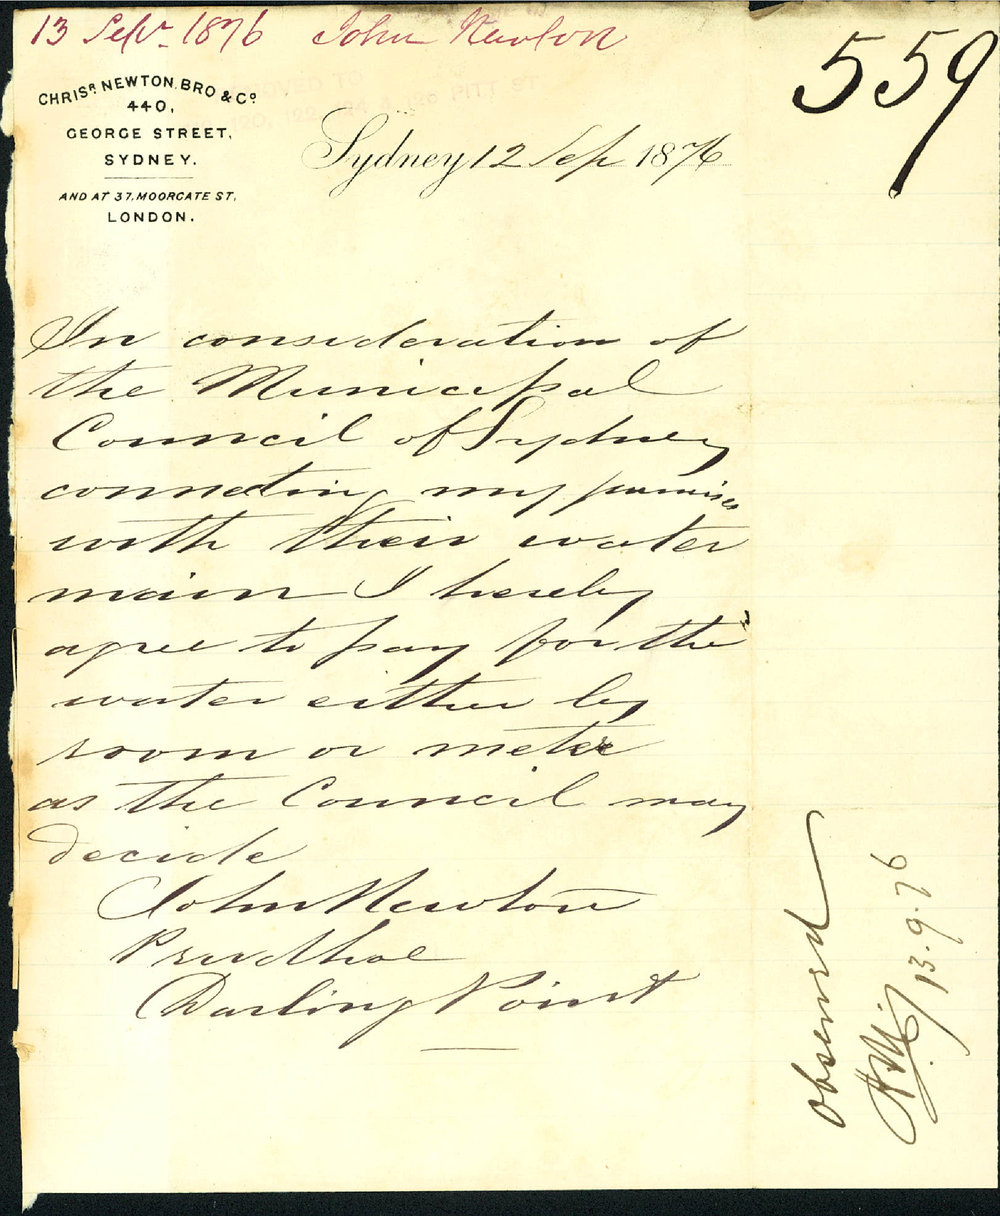 13 Sepr 1876 John Newton
559
CHRISR NEWTON. BRO & CO.
440,
GEORGE STREET,
SYDNEY.
AND AT 37, MOORGATE ST,
LONDON.
MOVED TO
120, 122, 124 & 126 PITT ST
Sydney 12 Sep 1876
In consideration of
the Municipal
Council of Sydney
connecting my premises
with their water
main I hereby
agree to pay for the
water either by
room or meter
as the Council may
decide
John Newton
Prudhoe
Darling Point
Observed
13.9.76